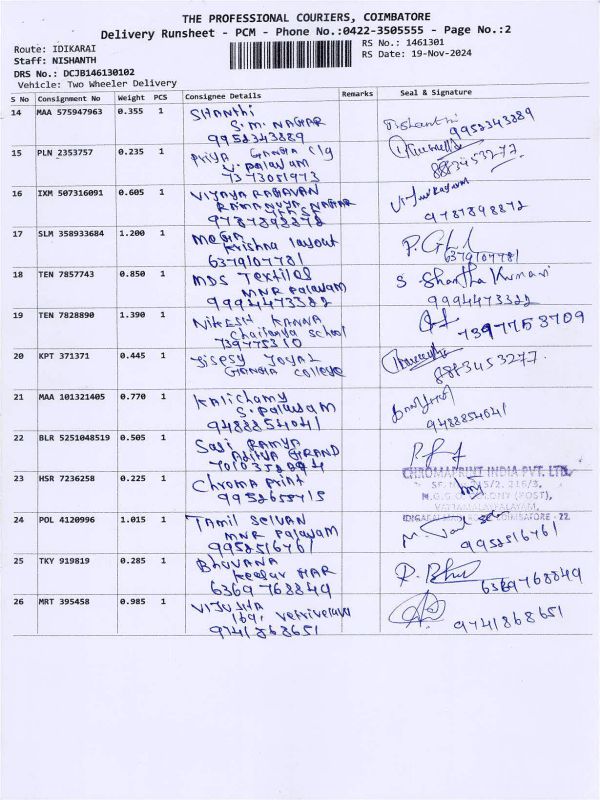 THE PROFESSIONAL COURIERS, COIMBATORE
Delivery Runsheet - PCM - Phone No.:0422-3505555 - Page No.:2
Route: IDIKARAI
RS No.: 1461301
Staff: NISHANTH
RS Date: 19-Nov-2024
DRS No.: DCJB146130102
Vehicle: Two Wheeler Delivery
S No Consignment No Weight PCS Consignee Details Remarks Seal & Signature
14 MAA 575947963 0.355 1 SHANthi
S.M. NAGAR
9952343889 9952343889
15 PLN 2353757 0.235 1 Priya GANGA Clg
V. palayam
7373051973 8883453277
16 IXM 507316091 0.605 1 VIJAYA RAGAVAN
RAMANUJA NAGAR
9787898872 9787898872
17 SLM 358933684 1.200 1 MEGA
Krishna layout
6379107781 6379107781
18 TEN 7857743 0.850 1 MDS Textiles
MNR Palayam
9994473322 S Shantha Kumari
9994473322
19 TEN 7828890 1.390 1 Nikesh KANNA
Chaitanya School
7397753709
20 KPT 371371 0.445 1 JOYAL
GANGA College
8883453277
21 MAA 101321405 0.770 1 Kalichamy
S. Palayam
9488854041 9488854041
22 BLR 5251048519 0.505 1 Sasi RAMYA
Aditya GRAND
23 HSR 7236258 0.225 1 Chroma Print
CHROMAPRINT INDIA PVT. LTD.
24 POL 4120996 1.015 1 TAmil SelVAN
MNR Palayam
9952516761 9952516761
25 TKY 919819 0.285 1 BhUVANA
6369768849 6369768849
26 MRT 395458 0.985 1 VIJUSHA
9741868651 9741868651